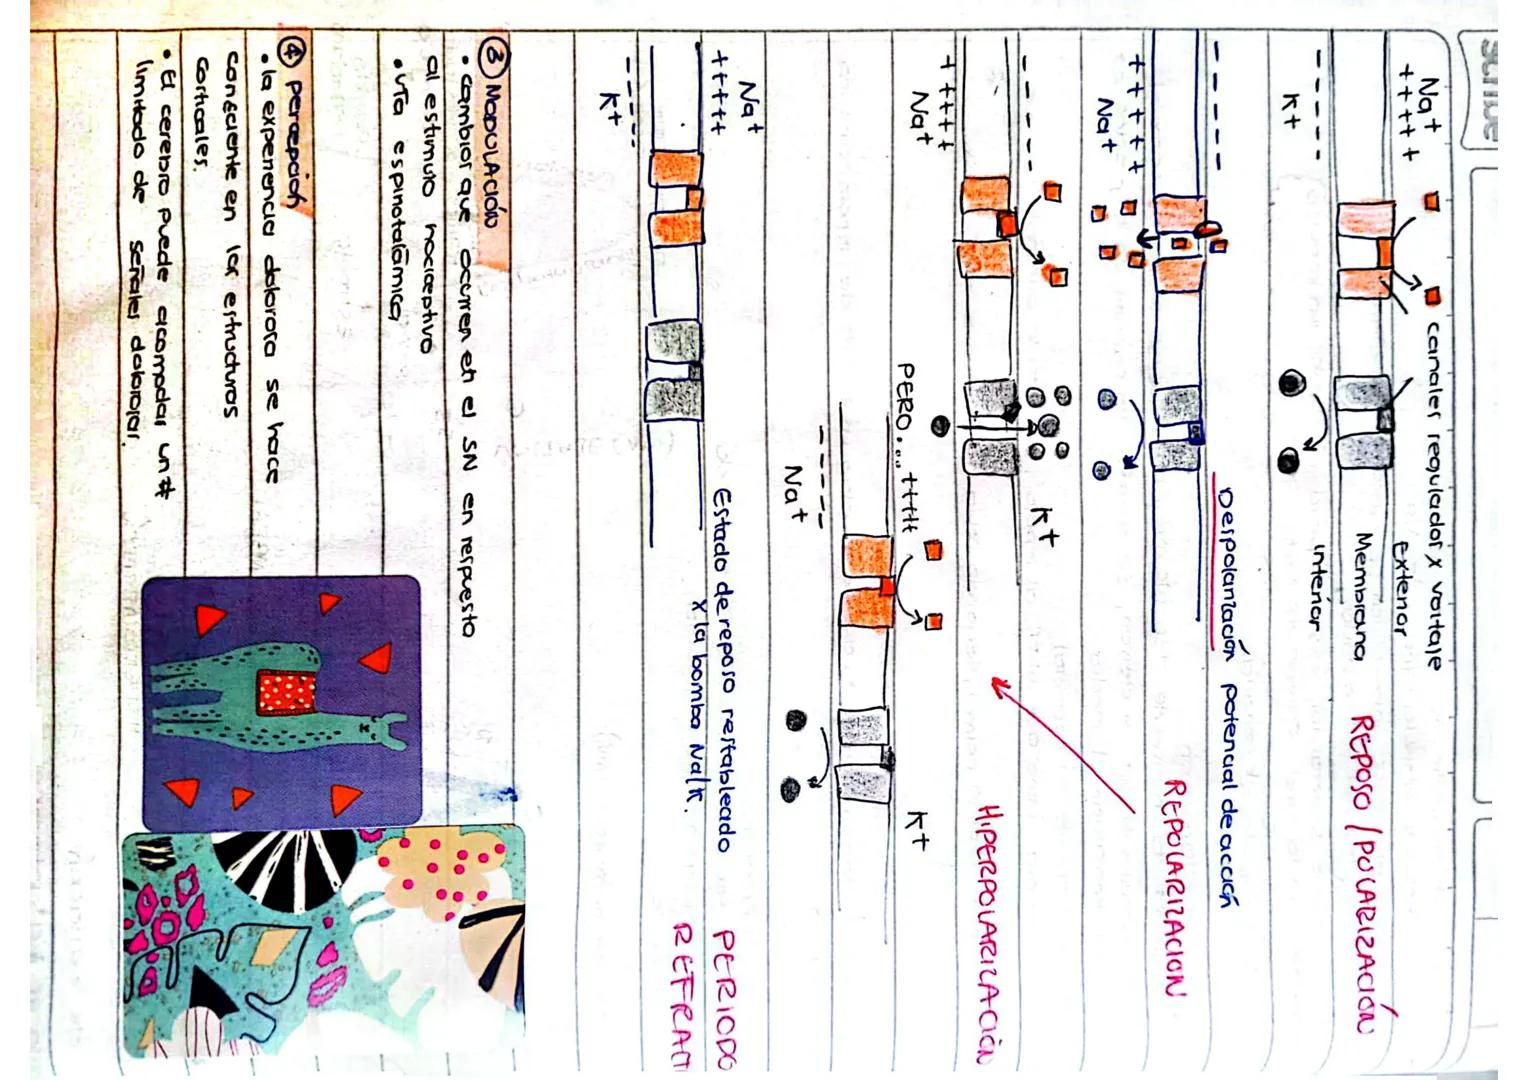 scribe
canales regulador x voltaje
Na+
+++++
Exterior
Membrana
REPOSO / POLARIZACIÓN
interior
-----
K+
Despolarización potencial de acción
-----
REPOLARIZACION
+++++
Na+
-----
K+
HIPERPOLARIZACIÓN
+++++
Na+
PERO... +++++
K+
-----
Na+
Na+
+++++
Estado de reposo restableado
x la bomba Na/K.
PERIODO
REFRAT
-----
K+
③ MODULACIÓN
• cambios que ocurren en el SN en respuesta
al estimulo nociceptivo
• vía espinotalámica
④ percepción
• la experiencia dolorosa se hace
conciente en las estructuras
corticales.
• El cerebro puede acomodar un #
limitado de señales dolorosas.